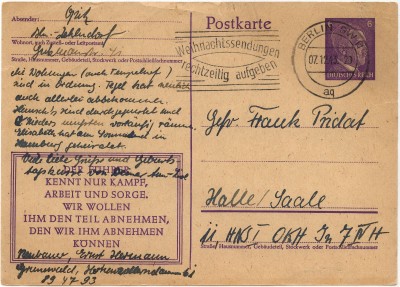 Absender: Opitz
Bln. Zehlendorf
Wohnort, auch Zustell- oder Leitpostamt
Straße, Hausnummer, Gebäudeteil, Stockwerk oder Postschließfachnummer
Postkarte
Weihnachtssendungen
rechtzeitig aufgeben
BERLIN SW
07.12.43
aq
6
DEUTSCHES REICH
die Wohnungen (auch
sind in Ordnung. Tegel hat
auch allerlei abbekommen.
sind durchgerüttelt und
mußten vorläufig räumen.
Elisabeth hat am Sonnabend in
Hamburg geheiratet.
Viele liebe Grüße und Geburts-
DER FÜHRER
KENNT NUR KAMPF,
ARBEIT UND SORGE.
WIR WOLLEN
IHM DEN TEIL ABNEHMEN,
DEN WIR IHM ABNEHMEN
KÖNNEN
Neubauer, Ernst Hermann
Grunewald,
89 47 93
Gefr Frank Pridat
Halle/Saale
II HNS OKH
Straße, Hausnummer, Gebäudeteil, Stockwerk oder Postschließfachnummer